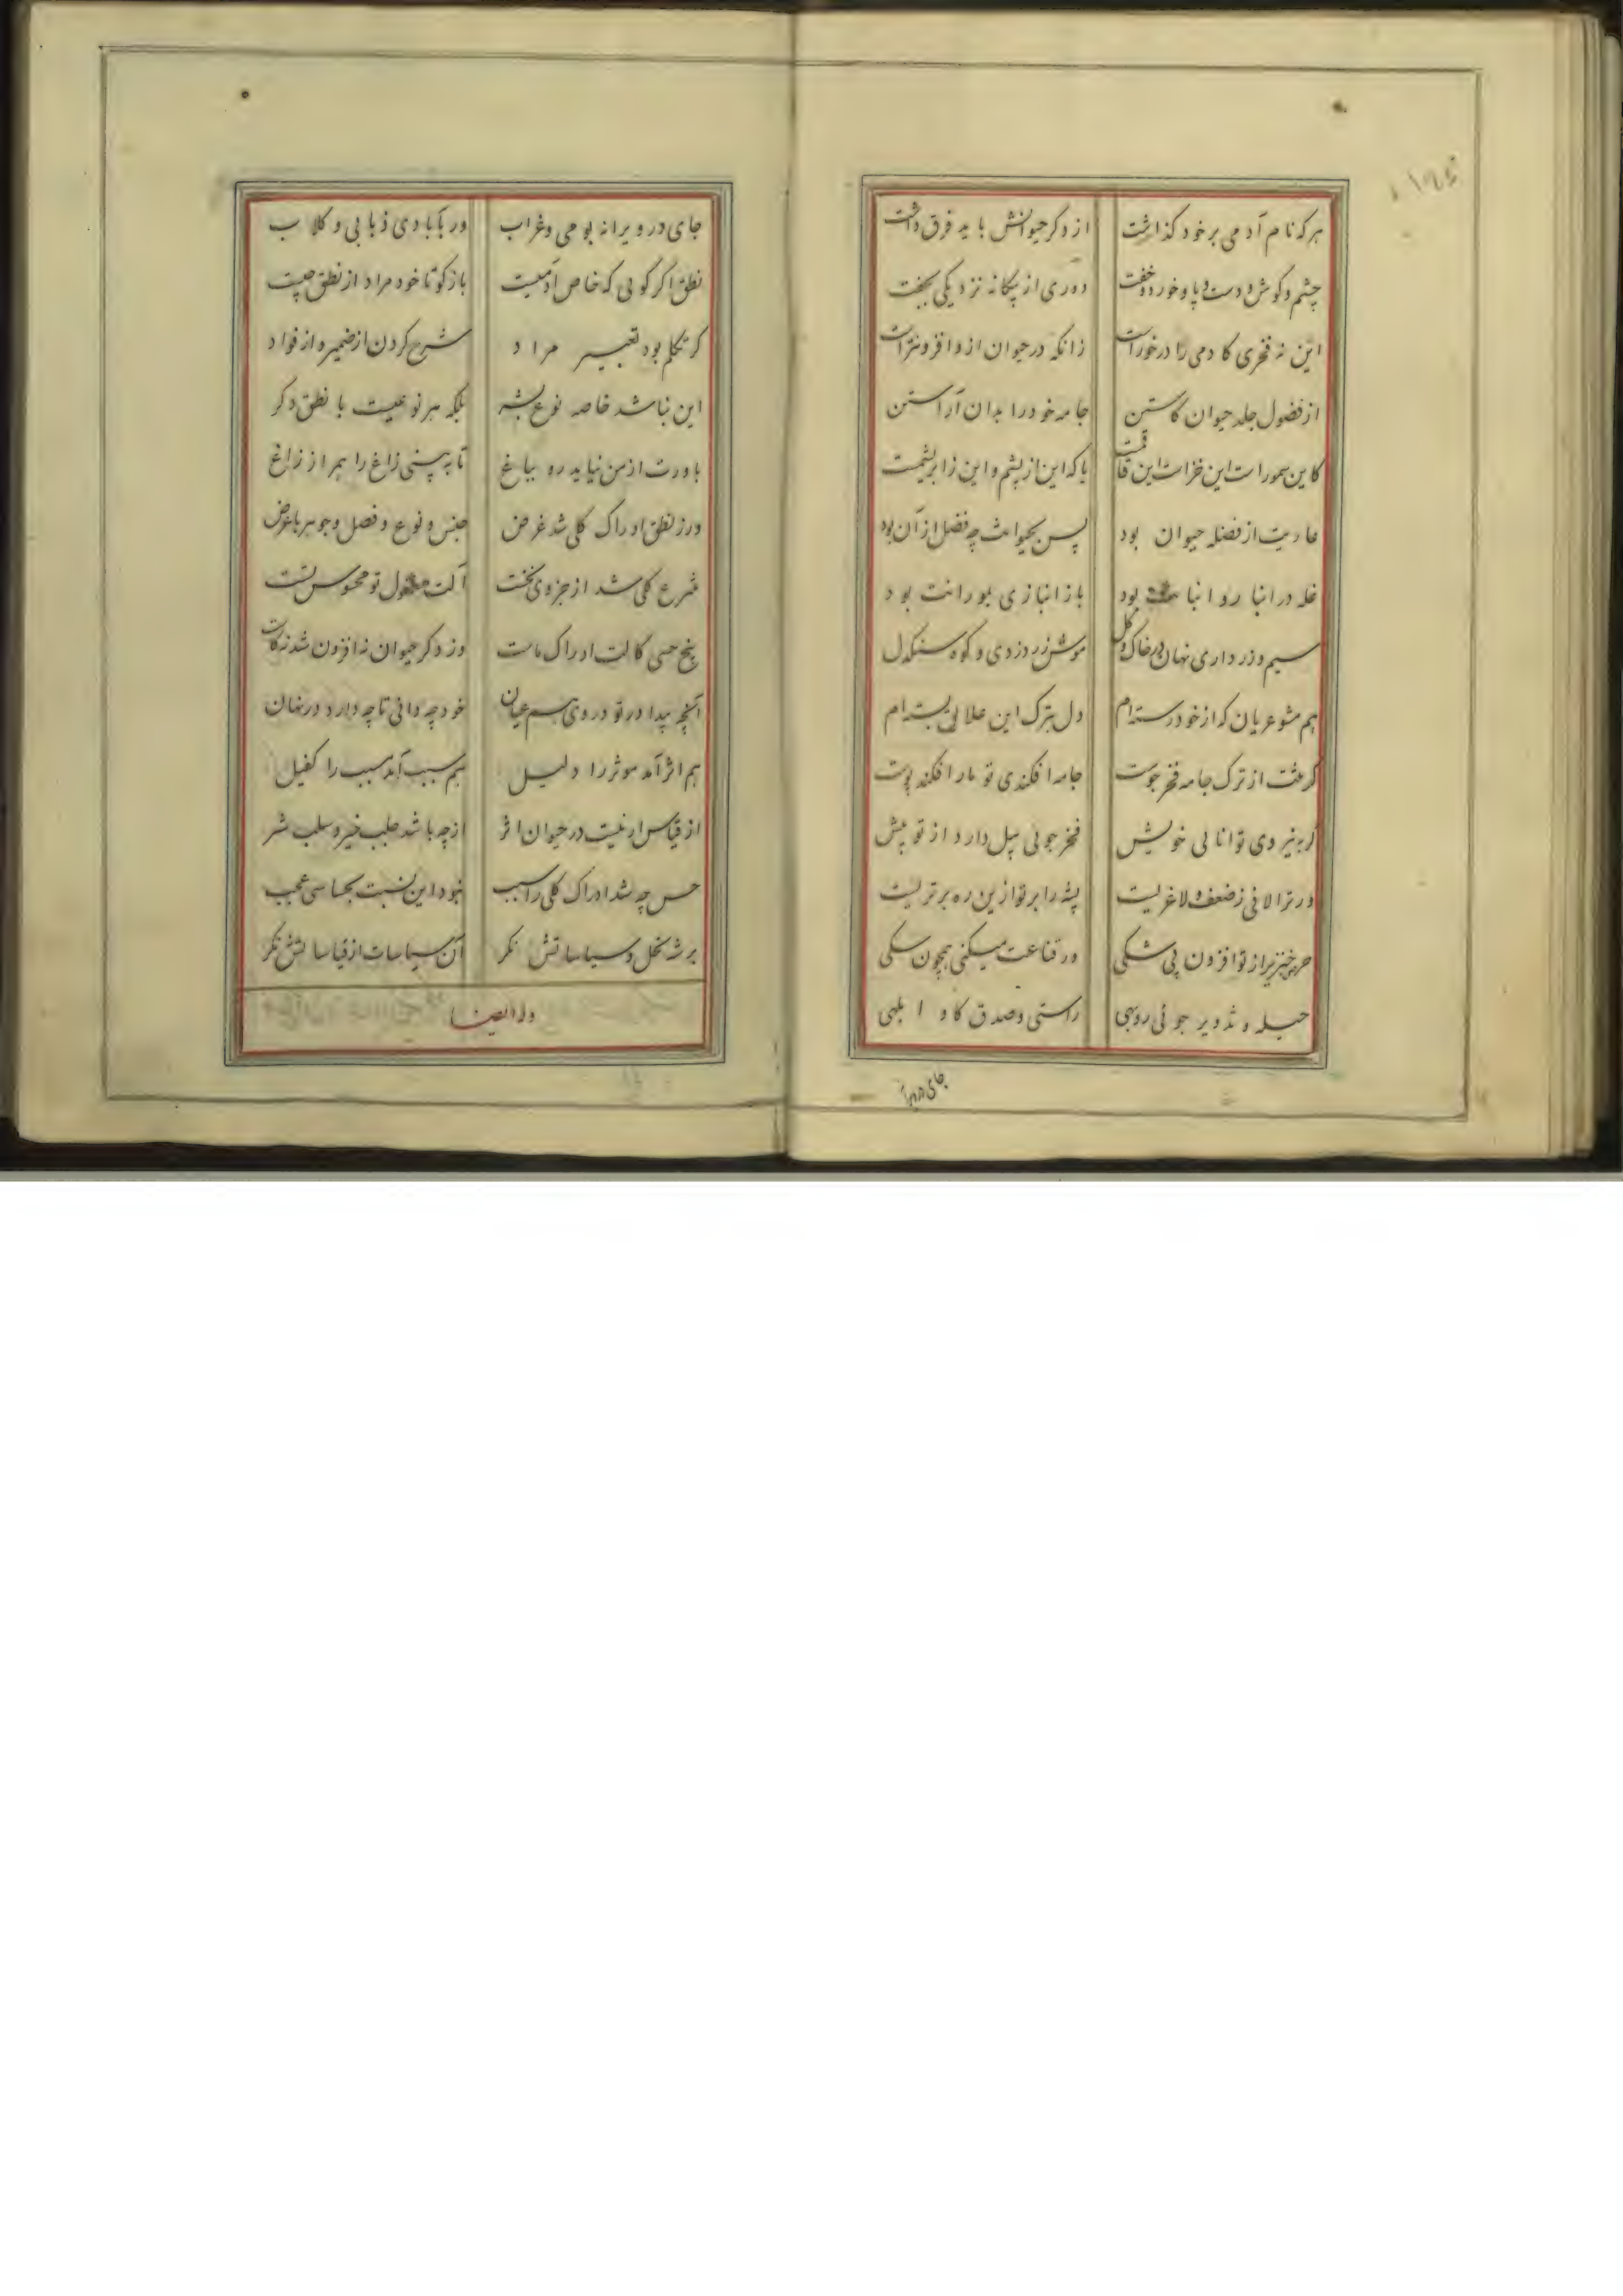 هر که نام آدمی بر خود کذاشت از دکر حیوانش باید فرق داشت
چشم و کوش و دست و پا و خورد و خفت دوری از پیکانه نزدیکی بجفت
این نه فخری کادمی را درخورات زانکه در حیوان ازو افزونترات
از فضول جلد حیوان کاستن جامه خود را بدان آراستن
کاین سمورات این خزات این قاقمست یا که این از پشم و این زابریشمست
عاریت از فضله حیوان بود پس بحیوانت چه فضل از آن بود
غله در انبار و انبا بود باز انبازی بمورانت بود
سیم و زر داری نهان در خاک و کل موش زر دزدی و کوه سنکدل
هم مشو عریان که از خود رسته‌ام دل بترک این علایق بسته‌ام
کر عنت از ترک جامه فخر جوست جامه افکندی تو مار افکند پوست
کر بنیروی توانایی خویش فخر جویی پیل دارد از تو پیش
ور ترا لافی ز ضعف و لاغریست پشه را بر تو ازین ره برتریست
حرص خنزیر از تو افزون بی شکی ور قناعت میکنی همچون سکی
حیله و تدویر جوئی روبهی راستی و صدق کاو ابلهی
جای در ویرا
جای در ویرانه بومی و غراب ور بآبادی ذبابی و کلاب
نطق اکر کویی که خاص آدمیست باز کو تا خود مراد از نطق چیست
کر تکلم بود تعبیر مراد شرح کردن از ضمیر و از فواد
این نباشد خاصه نوع بشر بلکه هر نوعیست با نطق دکر
باورت از من نیاید رو بباغ تا ببینی زاغ را همراز زاغ
ور ز نطق ادراک کلی شد غرض جنس و نوع و فصل و جوهر با عرض
شرع کلی شد از جزوی نخست آلت معقول تو محسوس تست
پنج حسی کالت ادراک ماست وز دکر حیوان نه افزون شد نه کاست
آنچه پیدا در تو در وی هم عیان خود چه دانی تا چه دارد در نهان
هم اثر آمد موثر را دلیل هم سبب آمد مسبب را کفیل
از قیاس ار نیست در حیوان اثر از چه باشد جلب خیر و سلب شر
حس چه شد ادراک کلی را سبب نبود این نسبت بحساسی عجب
بر شه نحل و سیاساتش نکر آن سیاسات از قیاساتش نکر
وله ایضا